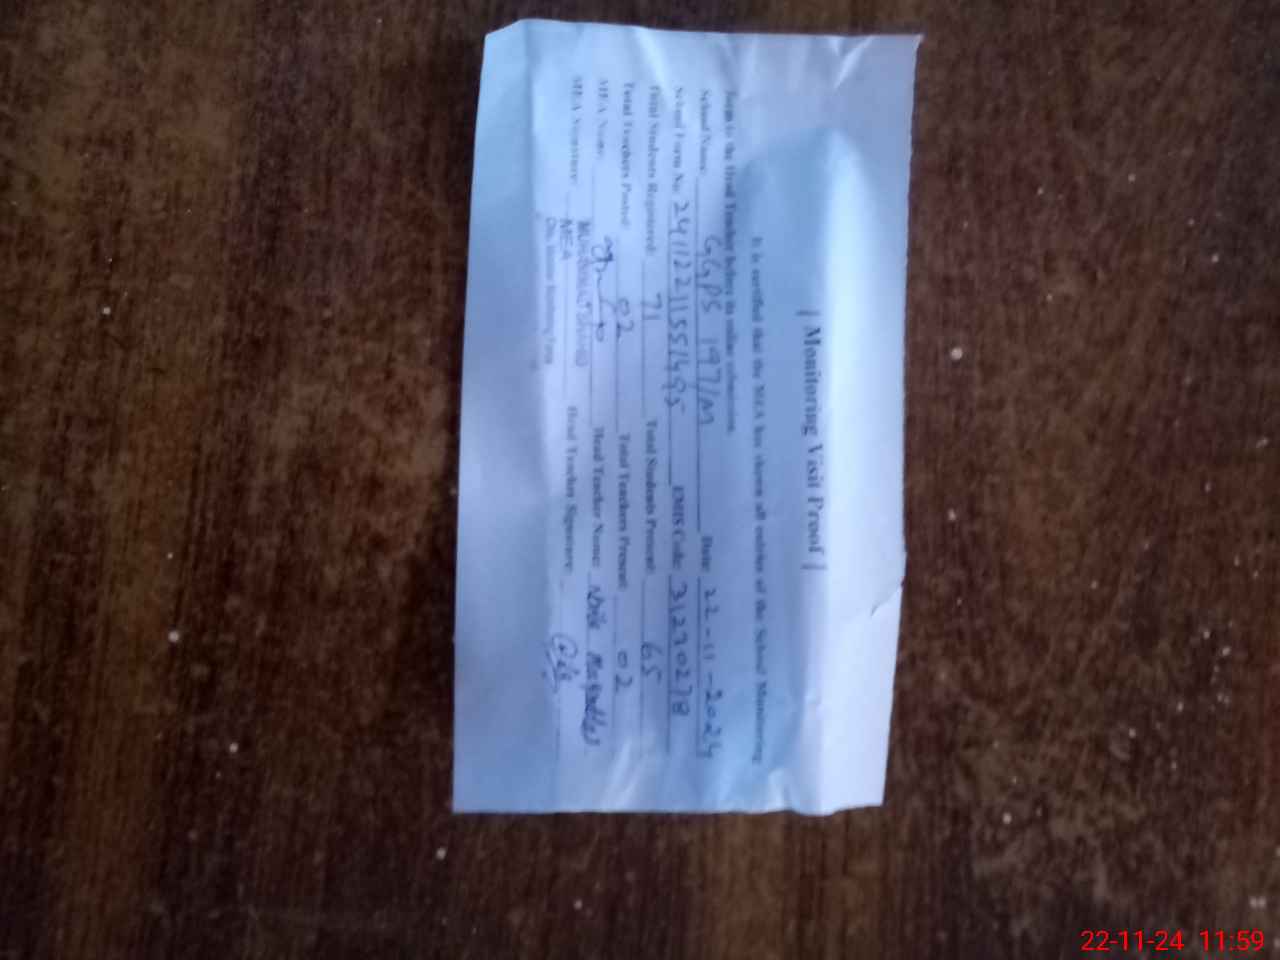 | Monitoring Visit Proof |
It is certified that the MEA has shown all entries of the School Monitoring
form to the Head Teacher before its online submission
School Name: GGPS 197/M Date: 22-11-2024
School Form No. 24112211551495 EMIS Code: 31230278
Total Students Registered: 71 Total Students Present: 65
Total Teachers Posted: 02 Total Teachers Present: 02
MEA Name: Head Teacher Name:
MEA Signature: Head Teacher Signature:
MEA
22-11-24 11:59